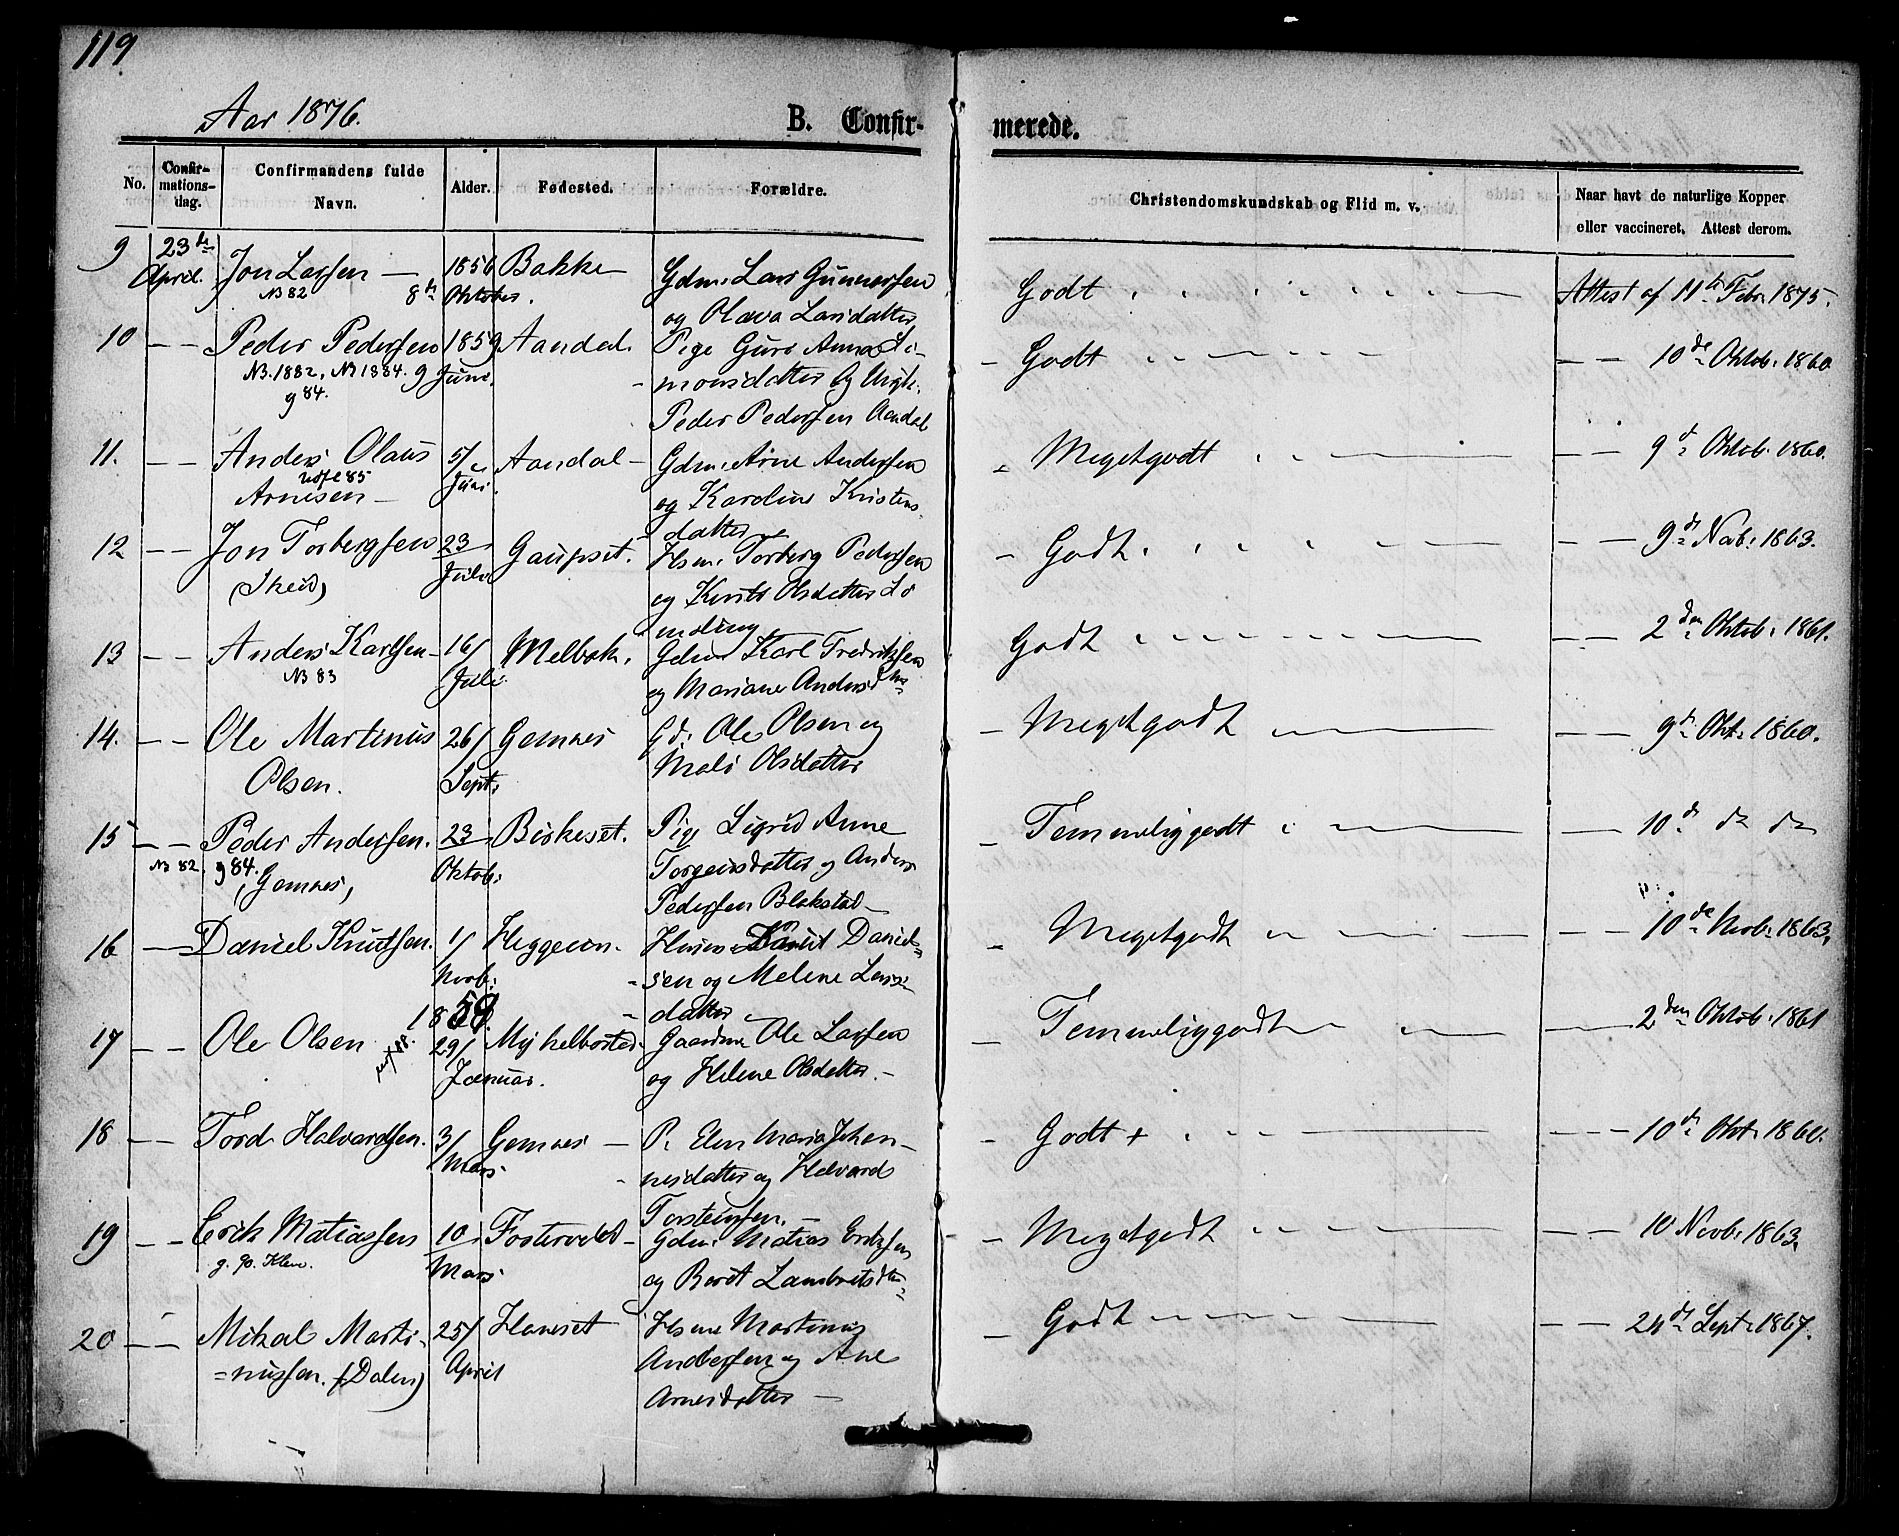 119
Aar 1876.
B. Confir-
merede.
No.
Confir-
mations-
dag.
Confirmandens fulde
Navn.
Alder.
Fødested.
Forældre.
Christendomskundskab og Flid m. v.
Naar havt de naturlige Kopper
eller vaccineret. Attest derom.
9 23de April. Jon Larsen — 8de Oktober 1856 Bakke
NB 82
Gdm. Lars Gunnersen
og Olava Larsdatter
Godt
Attest af 11te Febr. 1875.
10 — — Peder Pedersen 1859 9 Juni. Aandal.
NB. 1882, NB 1884.
g 84.
Pige Guri Anna Si-
monsdatter og Ungk.
Peder Pedersen Aandal
Godt
— — 10de Oktob. 1860
11. — — Anders Olaus 5/ Juni. Aandal
udfl 85
Arnesen —
Gdm. Arne Andersen
og Karoline Kristens-
datter
Megetgodt
— — 9d Oktob. 1860.
12 — — Jon Torbergsen 23 Juli Gaupset.
(Skeid)
Hsm. Torberg Pedersen
og Olsdatter
Godt
— — 9de Nov. 1863.
13 — — Anders Karlsen 16/ Juli Melbøk.
NB 83
Gdm Karl Fredriksen
og Mariane Andersdtr
Godt
— — 2den Oktob. 1861.
14. — — Ole Martinus 26/ Sept. Gemnes
Olsen.
Gd. Ole Olsen og
Mali Olsdatter
Megetgodt
— — 9de Okt. 1860.
15 — — Peder Andersen. 23 Oktob. Birkeset.
NB 82. g 84. (Gemnes)
Pige Sigrid Anne
Torgeirsdatter og Anders
Pedersen Blakstad
Temmeliggodt
— 10de do do
16 — Daniel Knutsen. 1/ Novb. Heggeem
Husm. Knut Daniel-
sen og Melene Lars-
datter
Megetgodt
— — 10de Novb. 1863.
1859.
17 — — Ole Olsen 29/ Januar. Myhelbostad
Gaardm Ole Larsen
og Helene Olsdatter. —
Temmeliggodt
— — 2den Oktob. 1861
18 — — Tord Halvardsen. 3/ Mars Gemnes —
P. Elen Maria Johan-
nesdatter og Halvard
Torsteinsen.
Godt +
— — 10de Okt. 1860.
19 — — Erik Matiassen 10 Mars Fostervold
Gdm. Matias Eriksen
og Berit Lambretsdtr
Megetgodt
— — 10 Novb. 1863.
20 — — Mikal Marti- 25/ April Hanset
=nussen. (Dalen)
Hsm Martinus
Andersen og Ane
Arnesdatter —
Godt
— — 24de Sept. 1867.